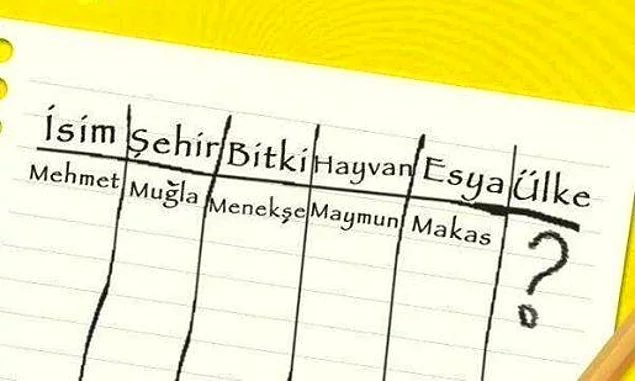 İsim Şehir Bitki Hayvan Eşya Ülke
Mehmet Muğla Menekşe Maymun Makas ?